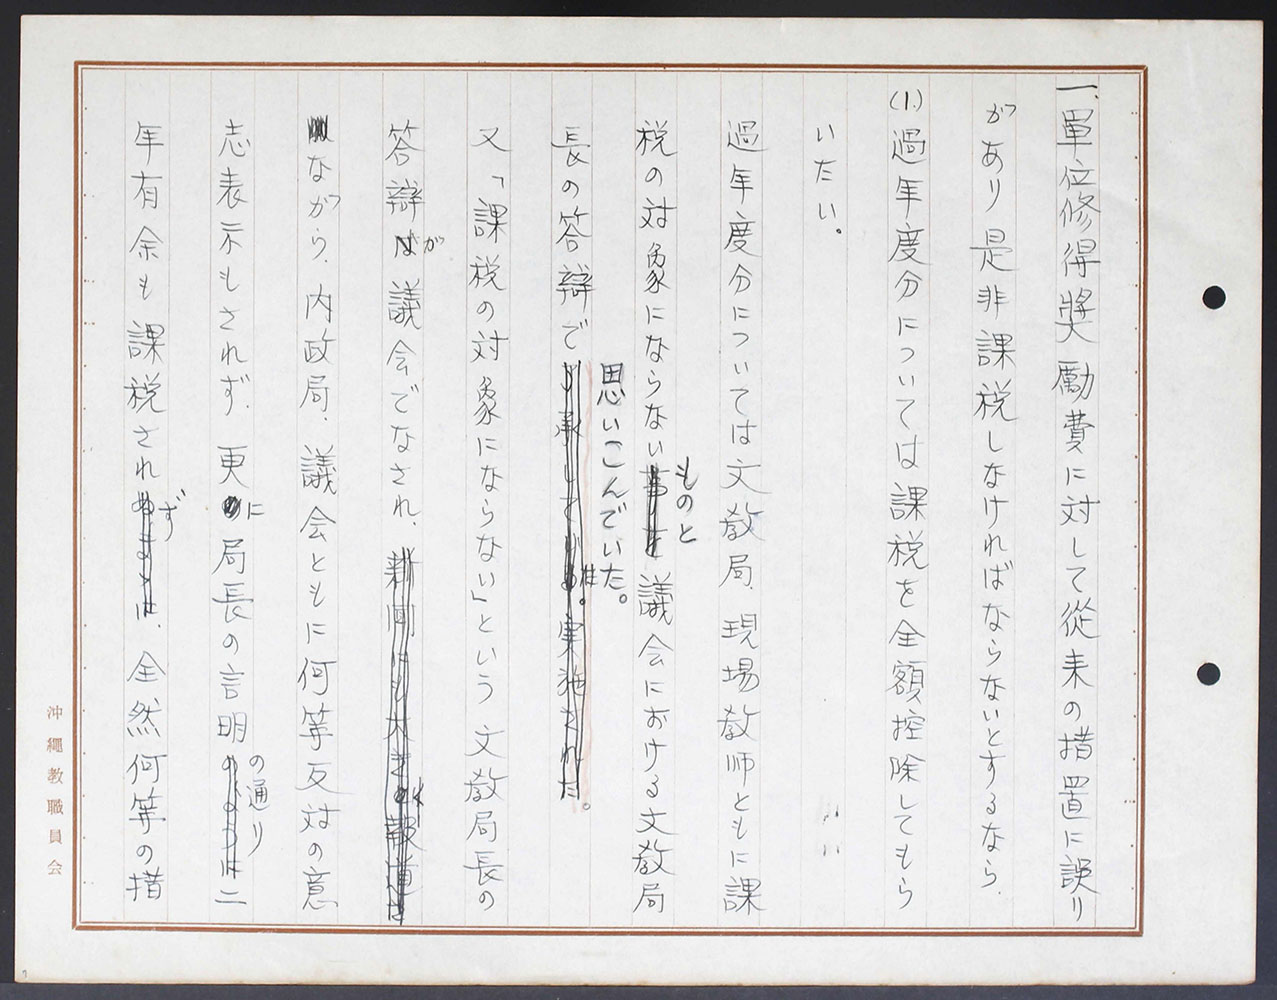 一、單位修得奬励費に対して從来の措置に誤り
があり是非課税しなければならないとするなら、
(1.)過年度分については課税を全額控除してもら
いたい。
過年度分については文教局、現場教師ともに課
税の対象にならないものと議会における文教局
長の答辯で思いこんでいた。
又「課税の対象にならない」という文教局長の
答辯が議会でなされ、
ながら、内政局、議会ともに何等反対の意
志表示もされず、更に局長の言明の通り二
年有余も課税されず、全然何等の措
沖繩教職員会